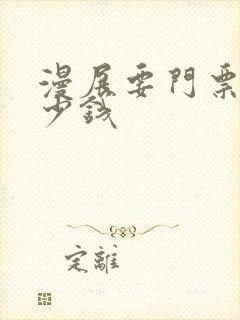 漫展要門票
少錢
定離